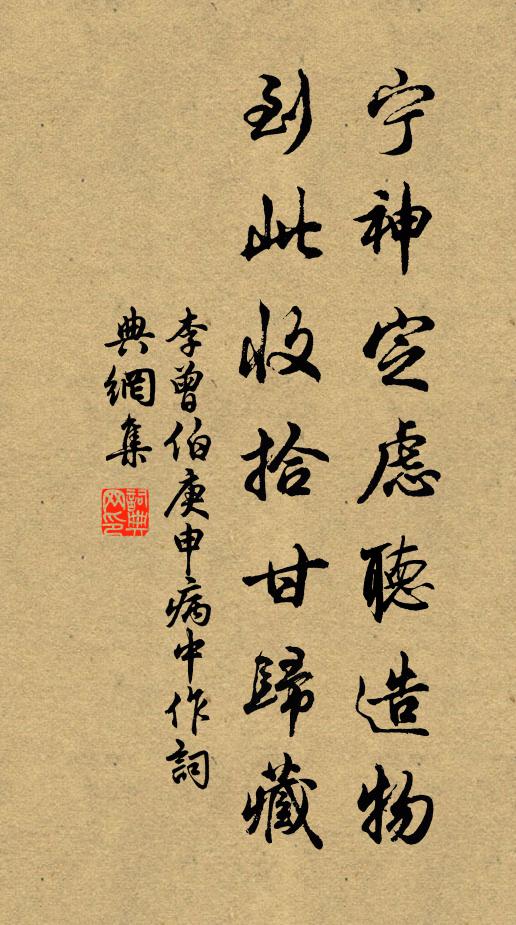 宁神定慮聽造物
到此收拾甘歸藏
李曾伯庚申病中作詞
典網集
詞典
网印